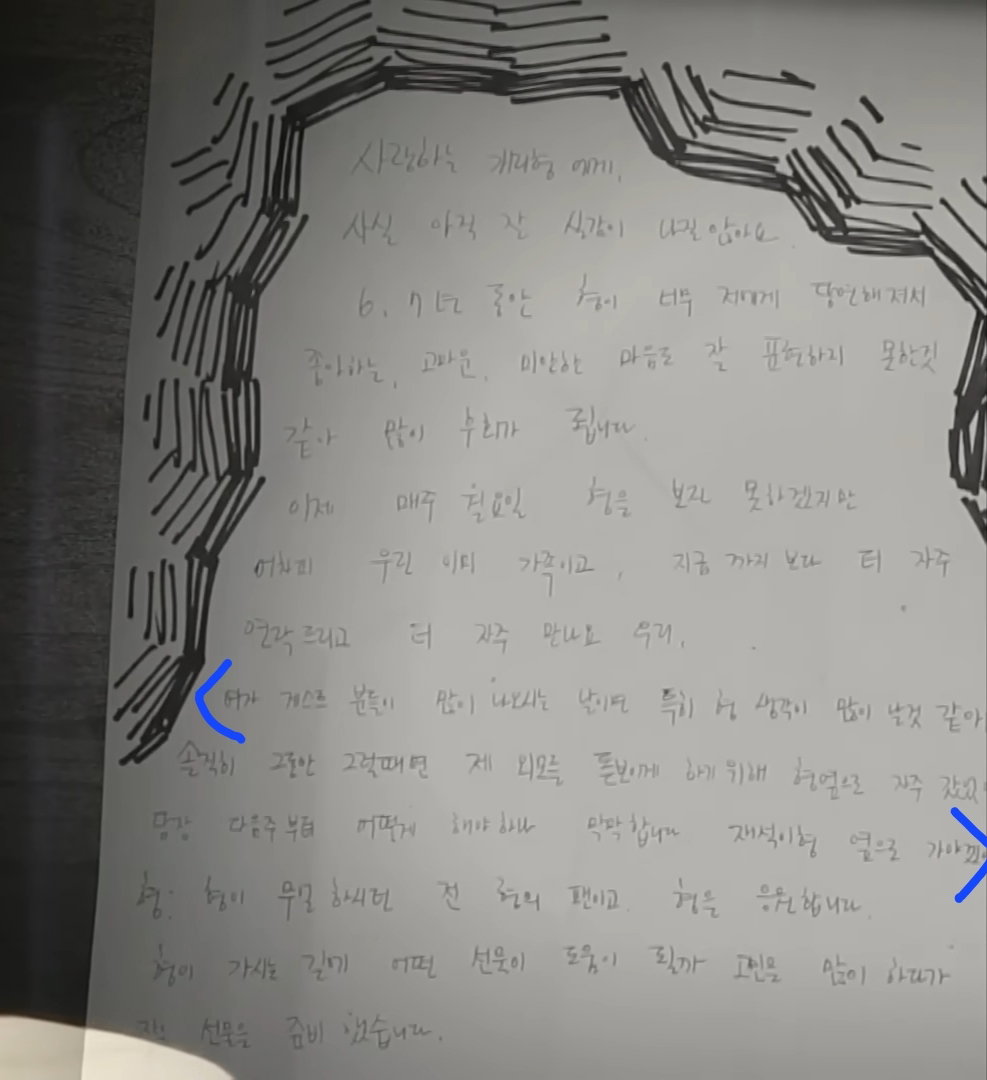 사랑하는 개리형 에게,
사실 아직 잘 실감이 나질 않아요.
6, 7년 동안 형이 너무 저에게 당연해져서
좋아하는, 고마운, 미안한 마음도 잘 표현하지 못한것
같아 많이 후회가 됩니다.
이제 매주 월요일 형을 보진 못하겠지만
어차피 우린 이미 가족이고, 지금까지 보다 더 자주
연락드리고 더 자주 만나요 우리.
여자 게스트 분들이 많이 나오시는 날이면 특히 형 생각이 많이 날것 같아
솔직히 그동안 그럴때면 제 외모를 돋보이게 하기위해 형옆으로 자주 갔었
당장 다음주부터 어떻게 해야하나 막막합니다 재석이형 옆으로 가야
형. 형이 무얼 하시던 전 형의 팬이고 형을 응원합니다.
형이 가시는 길에 어떤 선물이 도움이 될까 고민을 많이 하다가
선물을 준비 했습니다.